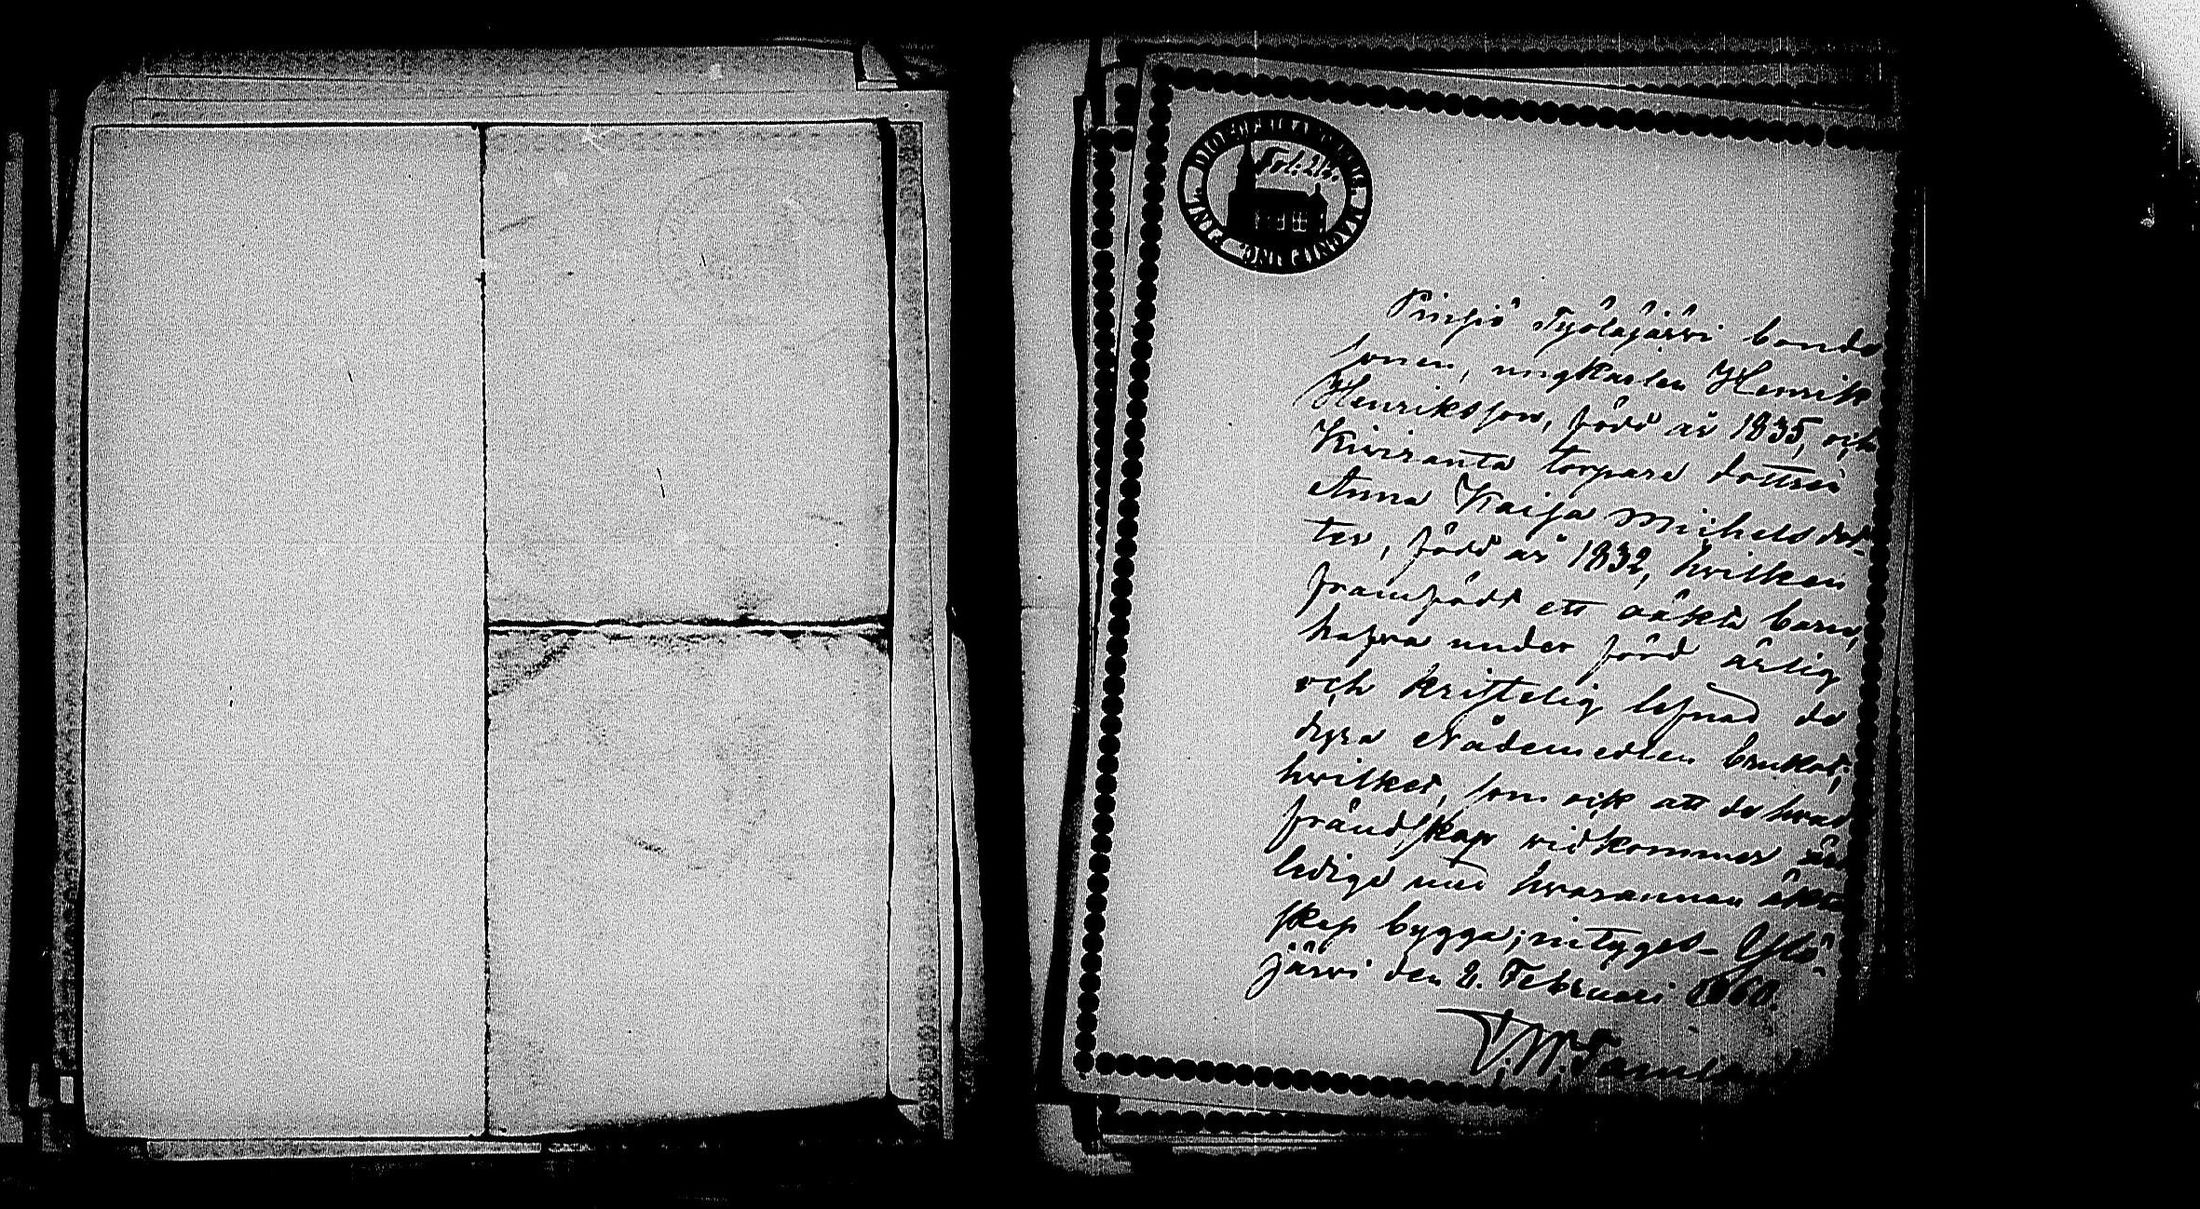 Fol. 24.
Pinsiö Työläjärvi bonde
sonen, ungkarlen Henrik
Henriksson, född år 1835, och
Kiviranta torpare dottren
Anna Kaisa Michelsdot-
ter, född år 1832, hvilken
framfödt ett oäkta barn,
hafva under förd ärlig
och kristelig lefnad de
dyra Nådemedlen brukat;
hvilket, som ock att de hvad
frändskap vidkommer äro
lediga med hvarannan äkta
skap bygga; intygas. Ylö-
järvi den 2. Februari 1860.